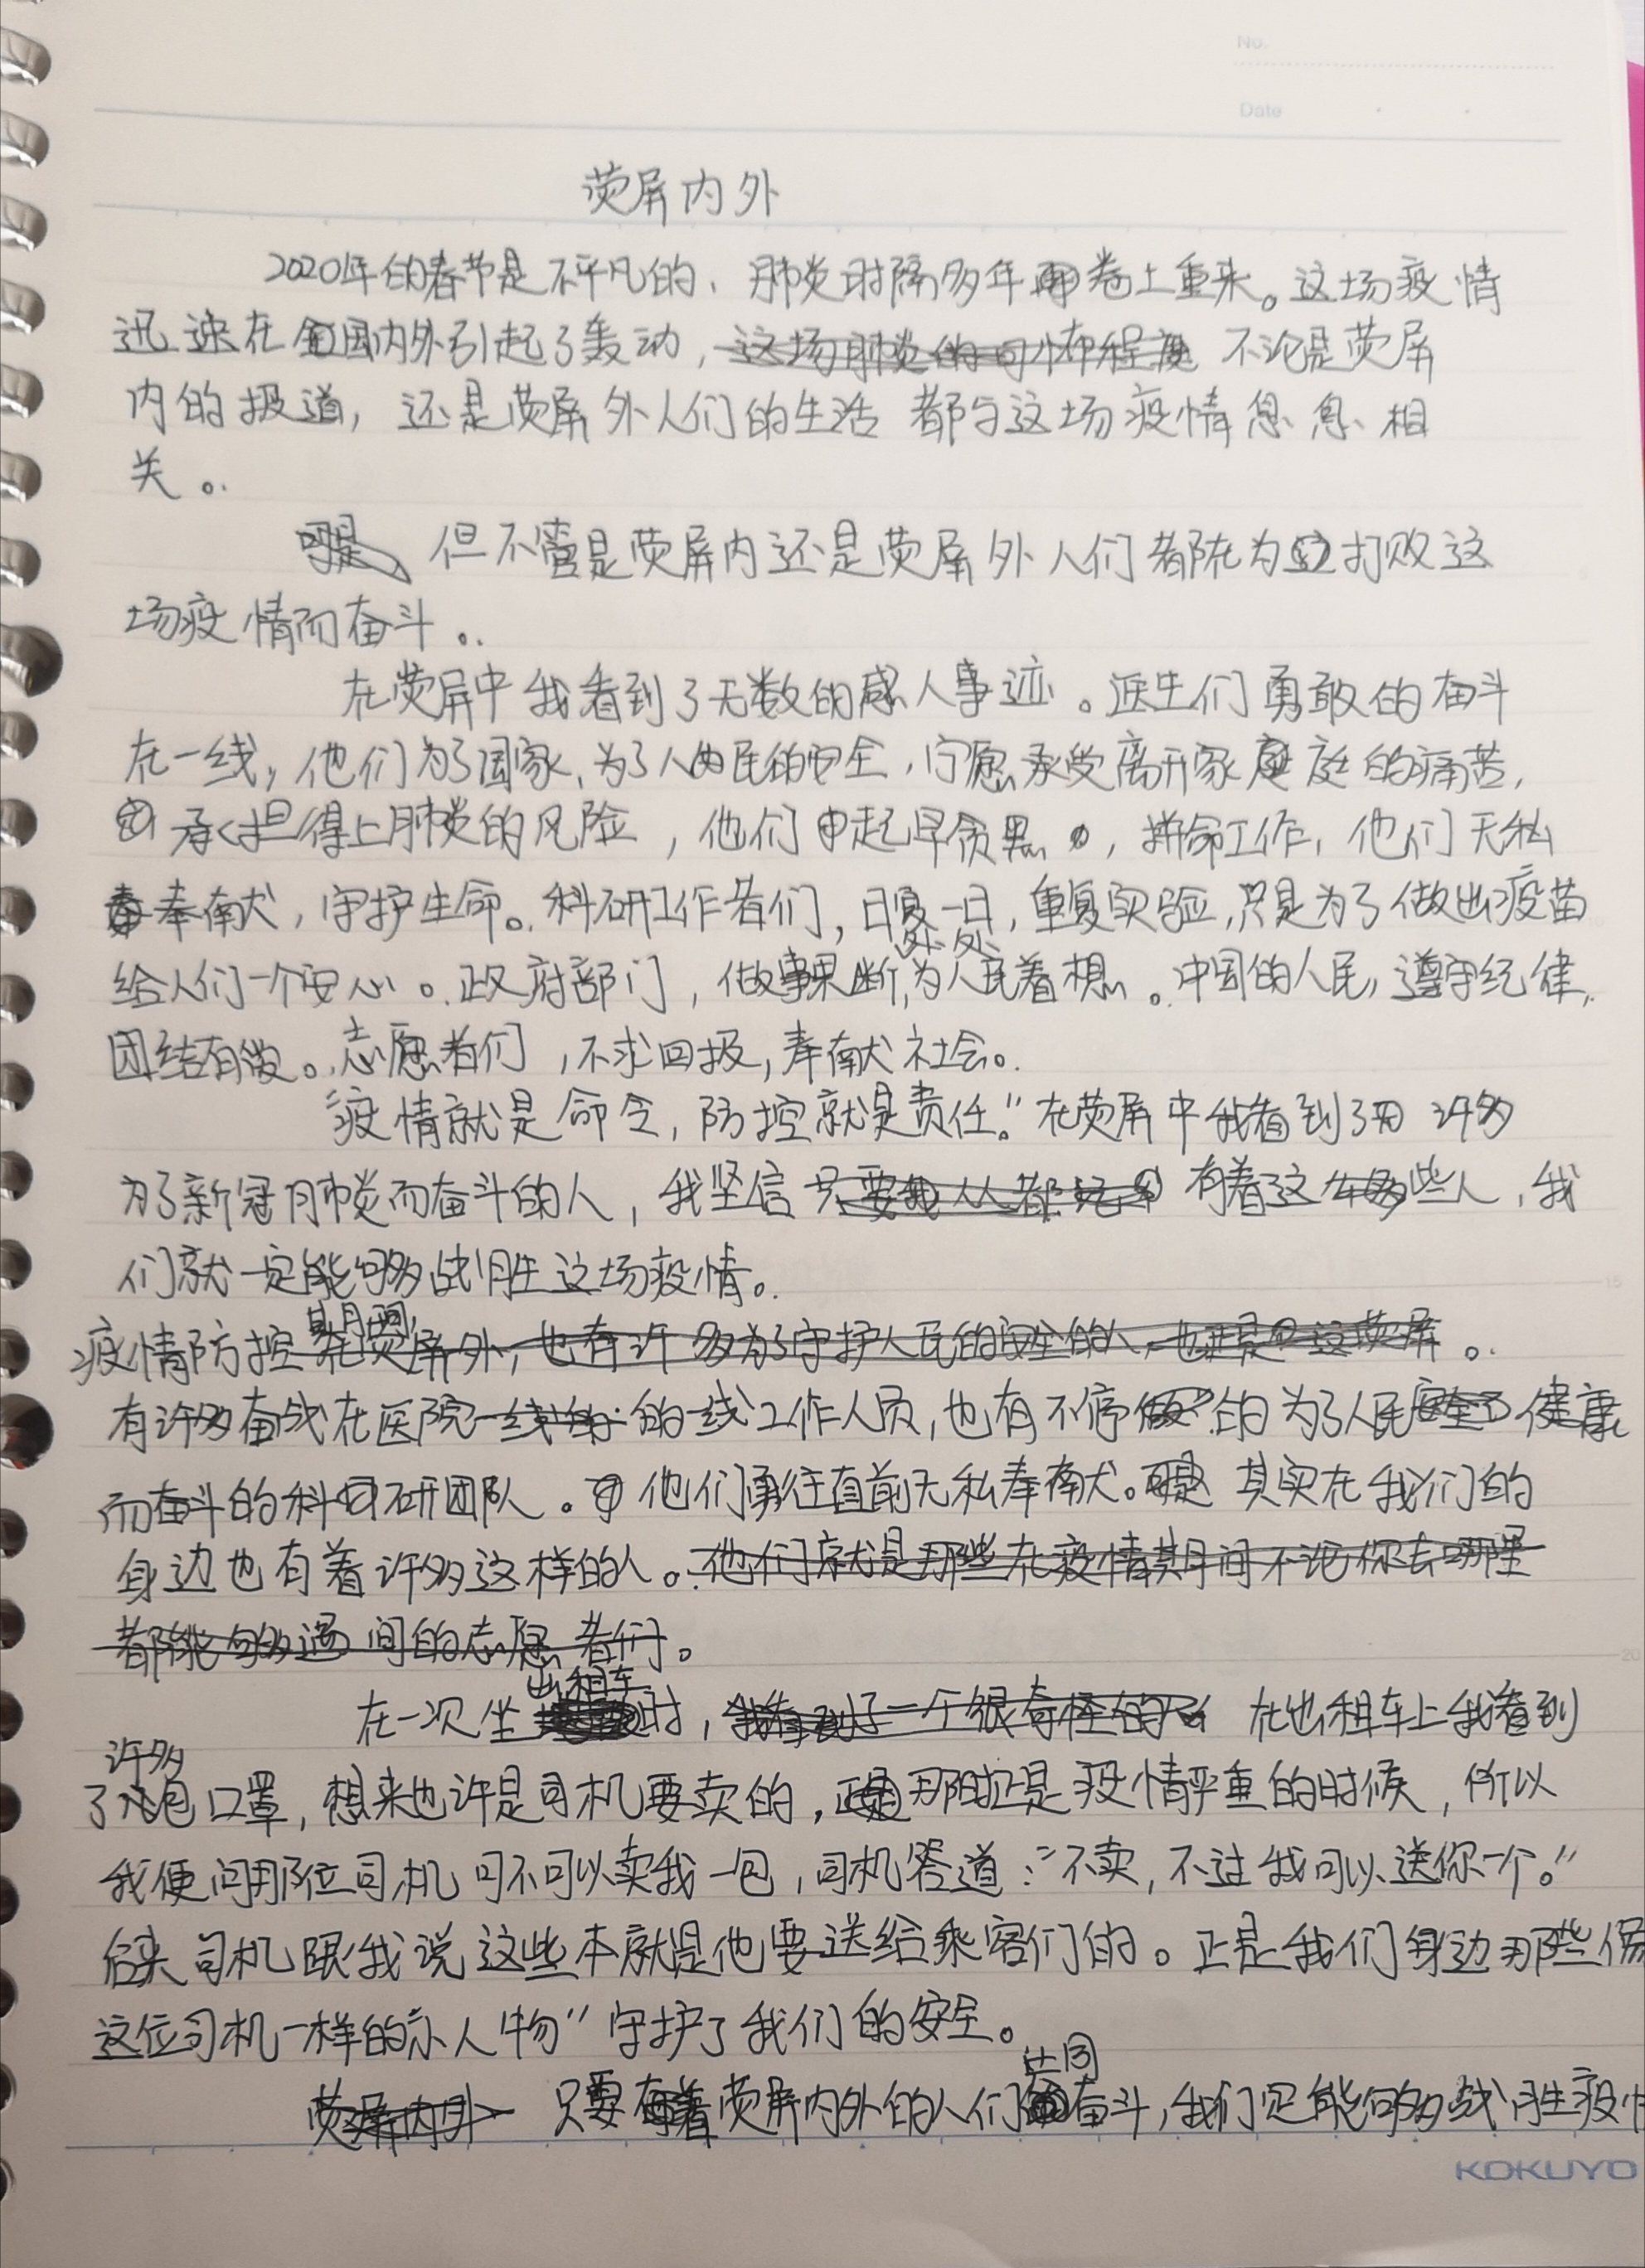 No.
Date
荧屏内外
2020年的春节是不平凡的，肺炎时隔多年卷土重来。这场疫情
迅速在国内外引起了轰动，这场肺炎的可怖程度 不论是荧屏
内的报道，还是荧屏外人们的生活 都与这场疫情息息相
关。
可是，但不管是荧屏内还是荧屏外人们都在为打败这
场疫情而奋斗。
在荧屏中我看到了无数的感人事迹。医生们勇敢的奋斗
在一线，他们为了国家，为了人民的安全，宁愿承受离开家庭的痛苦，
承担得上肺炎的风险，他们起早贪黑，拼命工作，他们无私
奉献，守护生命。科研工作者们，日复一日，重复实验，只是为了做出疫苗
给人们一个安心。政府部门，做事果断，处处为人民着想。中国的人民，遵守纪律，
团结有爱。志愿者们，不求回报，奉献社会。
“疫情就是命令，防控就是责任。”在荧屏中我看到了 许多
为了新冠肺炎而奋斗的人，我坚信 只要我 人人都 有着这些人，我
们就一定能够战胜这场疫情。
疫情防控期间，在荧屏外，也有许多为了守护人民的安全的人，也 这荧屏。
有许多奋战在医院一线的一线工作人员，也有不停的为了人民安全健康
而奋斗的科研团队。他们勇往直前无私奉献。可是 其实在我们的
身边也有着许多这样的人。他们就是那些在疫情其间不论你去哪里
都能够遇间的志愿者们。
在一次坐出租车时，我看到了一个很奇怪的 在出租车上我看到
了许多包口罩，想来也许是司机要卖的，那时正是疫情严重的时候，所以
我便问那位司机可不可以卖我一包，司机答道：“不卖，不过我可以送你一个。”
后来司机跟我说这些本就是他要送给乘客们的。正是我们身边那些像
这位司机一样的小人物”守护了我们的安全。
荧屏内外 只要有着荧屏内外的人们共同奋斗，我们定能够战胜疫情
KOKUYO